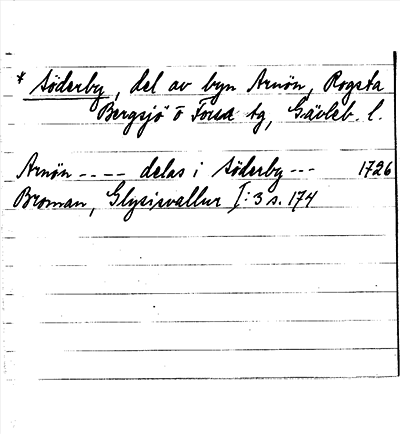 * Söderby, del av byn Arnön, Rogsta
Bergsjö o Forsa tg, Gävleb. l.
Arnön ---- delas i Söderby --- 1726
Broman, Glysisvallur I:3 s. 174